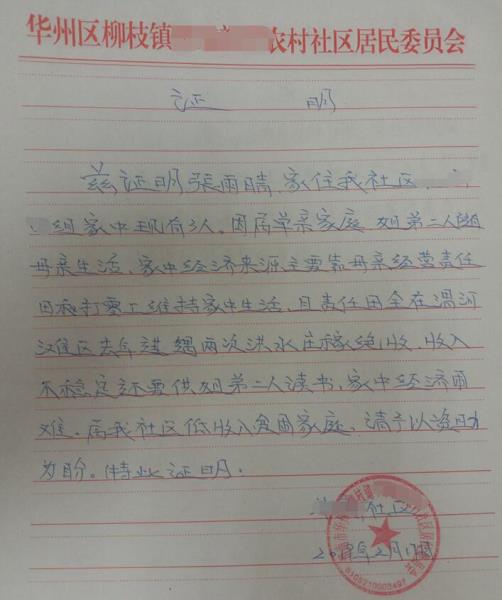 华州区柳枝镇 农村社区居民委员会
证 明
兹证明张雨晴,家住我社区
组家中现有3人。因属单亲家庭 姐弟二人随
母亲生活,家中经济来源主要靠母亲经营责任
田和打零工维持家中生活,且责任田全在渭河
滩区去年遭遇两次洪水庄稼绝收,收入
不稳定还要供姐弟二人读书,家中经济困
难。属我社区低收入贫困家庭,请予以资助
为盼。特此证明.
社区
年2月17日